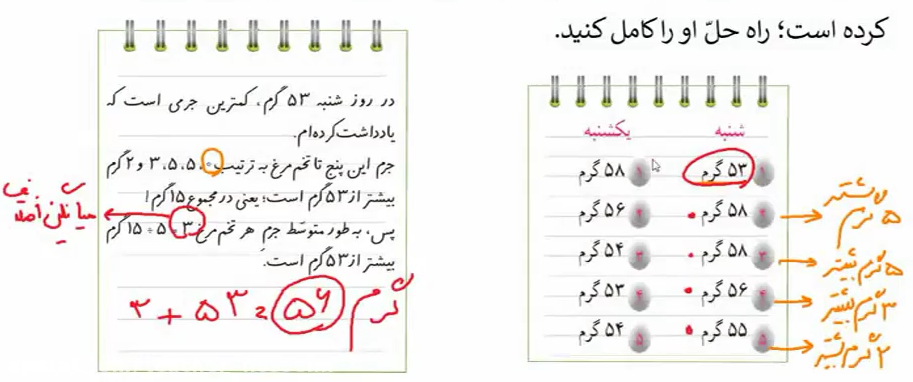 کرده است؛ راه حلّ او را کامل کنید.
شنبه یکشنبه
۱ ۵۳ گرم ۱ ۵۸ گرم
۲ ۵۸ گرم ۲ ۵۶ گرم
۳ ۵۸ گرم ۳ ۵۴ گرم
۴ ۵۶ گرم ۴ ۵۳ گرم
۵ ۵۵ گرم ۵ ۵۴ گرم
۵ گرم بیشتر
۳ گرم بیشتر
۲ گرم بیشتر
در روز شنبه ۵۳ گرم، کمترین جرمی است که
یادداشت کرده‌ام.
جرم این پنج تا تخم مرغ به ترتیب ۰، ۵، ۵، ۳ و ۲ گرم
بیشتر از ۵۳ گرم است؛ یعنی در مجموع ۱۵ گرم!
پس، به طور متوسّط جرم هر تخم مرغ ۳ = ۵ ÷ ۱۵ گرم
بیشتر از ۵۳ گرم است.
۳ + ۵۳ = ۵۶ گرم
میانگین